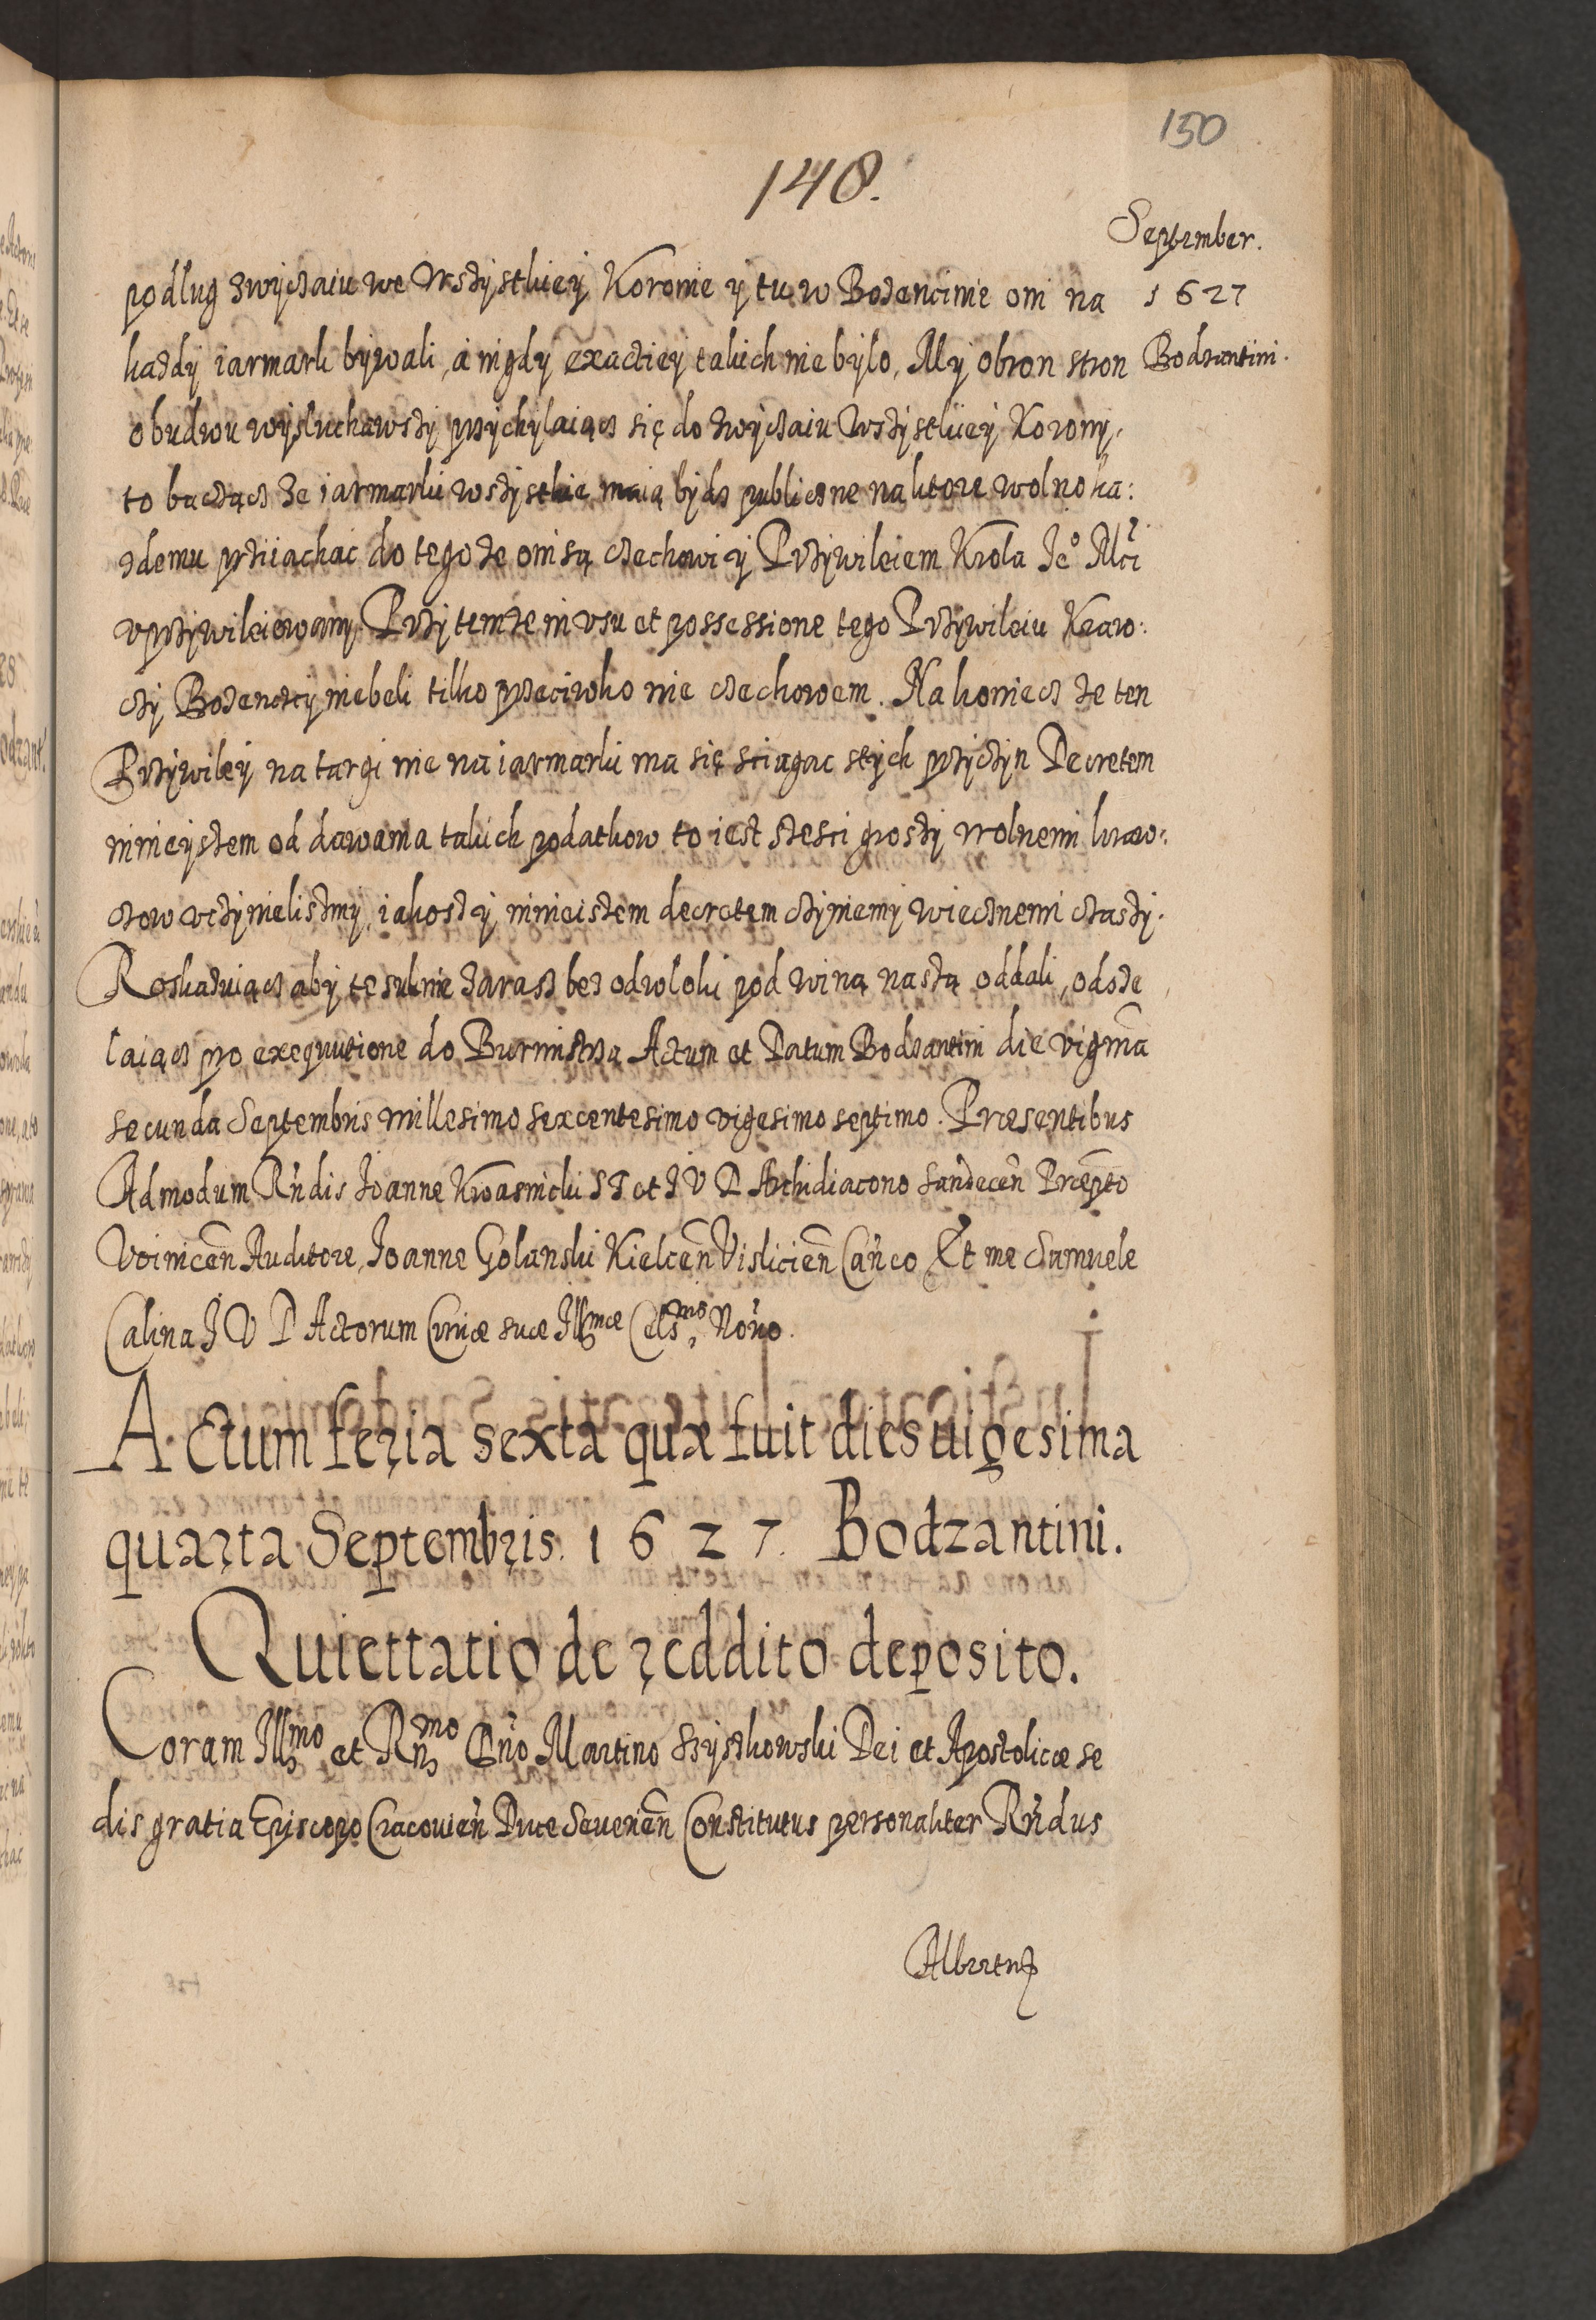 150
148.
September.
1627
Bodzantini.
podlug zwyczaiu we Wszystkiey Koronie y tu w Bozencinie oni na
kazdy iarmark bywali, á nigdy exactiey takich nie bylo, My obron stron
obudwu wysluchawszy przychylaiącz się do zwyczaiu Wszystkiey Korony,
to baczącz ze iarmarki wszystkie maią bydz publiczne na ktore wolno ka:
zdemu prziiachac do tego ze oni są czechowi y Przywileiem Krola Je° Mći
vprzywileiowany Przytem ze in vsu et possessione tego Przywileiu Kraw:
czy Bozenczcy niebeli tilko przeciwko nie czechowem. Na koniecz ze ten
Przywiley na targi nie na iarmarki ma się sciagac stych przyczyn Decretem
ninieyszem od dawania takich podatkow to iest szesci groszy wolnemi kraw:
czow vczynielismy, iakosz y ninieiszem decretem czyniemy wiecznemi czasy.
Roskazuiącz aby te suknie zarasz bez odwloki pod winą naszą oddali, odsze
laiącz pro exequutione do Burmistrza Actum et Datum Bodzantini die vigmã
secunda Septembris millesimo sexcentesimo vigesimo septimo. Præsentibus
Admodum Rńdis Ioanne Kwasnicki ST et I V D Archidiacono Sandecen̄ Præpto
Voinicen̄ Auditore, Joanne Golanski Kielcen̄ Vislicien̄ Cańco Et me Samuele
Calina I V D Actorum Curiæ suæ Illmæ Cels. Noŕio.
Actum feria sexta quæ fuit dies uigesima
quarta Septembris. 1627. Bodzantini.
Quiettatio de reddito deposito.
Coram Illmo et Rńmo Dńo Martino Szyszkowski Dei et Apostolicæ se
dis gratia Episcopo Cracouień Duce Seuerien̄ Constitutus personaliter Rńdus
Albertus